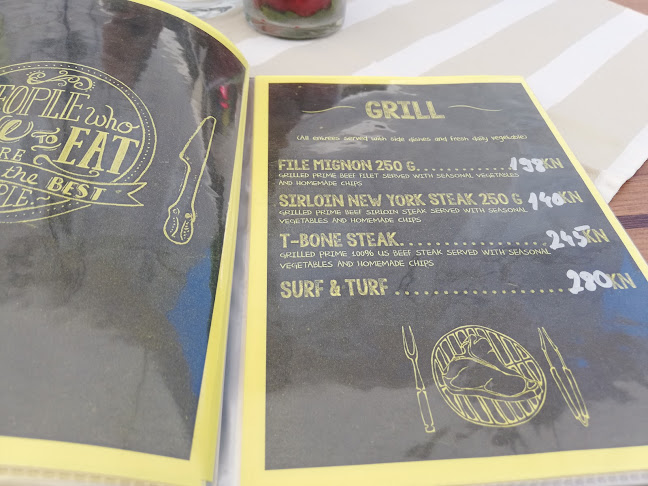 PEOPLE who
TO EAT
ARE
the BEST
PEOPLE.
GRILL
(All entrees served with side dishes and fresh daily vegetable)
FILE MIGNON 250 G. 198KN
GRILLED PRIME BEEF FILET SERVED WITH SEASONAL VEGETABLES
AND HOMEMADE CHIPS
SIRLOIN NEW YORK STEAK 250 G 140KN
GRILLED PRIME BEEF SIRLOIN STEAK SERVED WITH SEASONAL
VEGETABLES AND HOMEMADE CHIPS
T-BONE STEAK. 245KN
GRILLED PRIME 100% US BEEF STEAK SERVED WITH SEASONAL
VEGETABLES AND HOMEMADE CHIPS
SURF & TURF 280KN